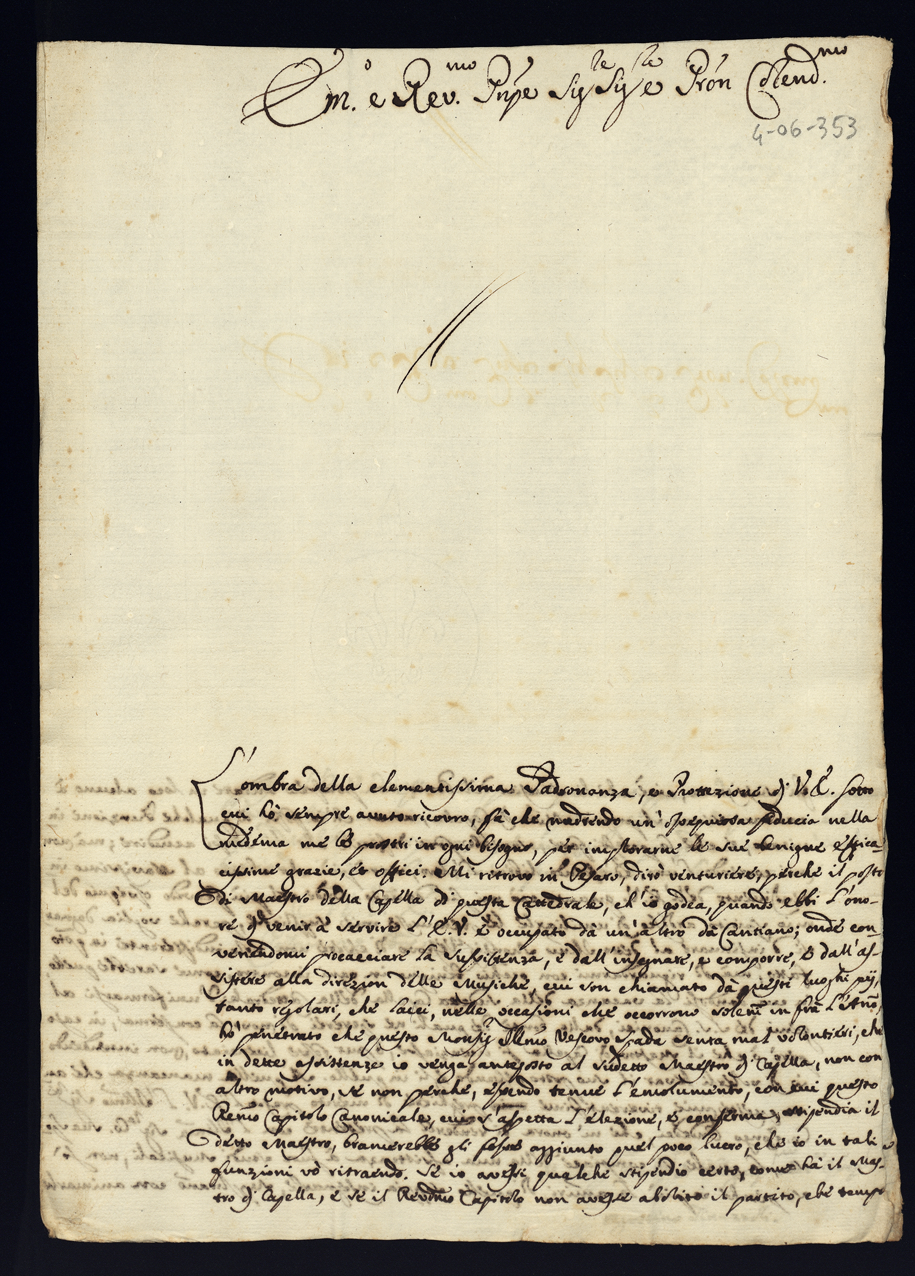 Em.o e Rev.mo Pnpe Sig.re Sig.re e Pron Colend.mo
4-06-353
L'ombra della clementissima Padronanza, e Protezione di V.E. sotto
cui hò sempre avuto ricovro, fà che nudrendo un' ossequiosa fiducia nella
medema me le prostri in ogni bisogno, per implorarne le sue benigne effica
cissime grazie, et offici. Mi ritrovo in Pesaro, dirò venturiere, perche il posto
di Maestro della Capella di questa Cattedrale, ch'io godea, quando ebbi l'ono-
re di venir à servire l'E.V. è occupato dà un'altro dà Cantiano; onde con
venendomi procacciare la sussistenza, e dall'insegnare, e comporre, e dall'as-
sistere alla direzion delle Musiche, cui son chiamato dà questi luoghi pij,
tanto regolari, che laici, nelle occasioni che occorrono solenni in frà l'Anno,
hò penetrato che questo Monsig. Illmo Vescovo Spada senta mal volontieri, che
in dette assistenze io venga anteposto al sudetto Maestro di Capella, non con
altro motivo, se non perche, essendo tenue l'emolumento, con cui questo
Remo Capitolo Canonicale, cui s'aspetta l'elezione, e conferma, stipendia il
detto Maestro, bramerebbe gli fosse aggiunto quel poco lucro, che io in tali
funzioni vò ritraendo. Se io avessi qualche stipendio certo, come hà il Mas-
tro di Capella, e se il Revdmo Capitolo non avesse abolito il partito, che tempo